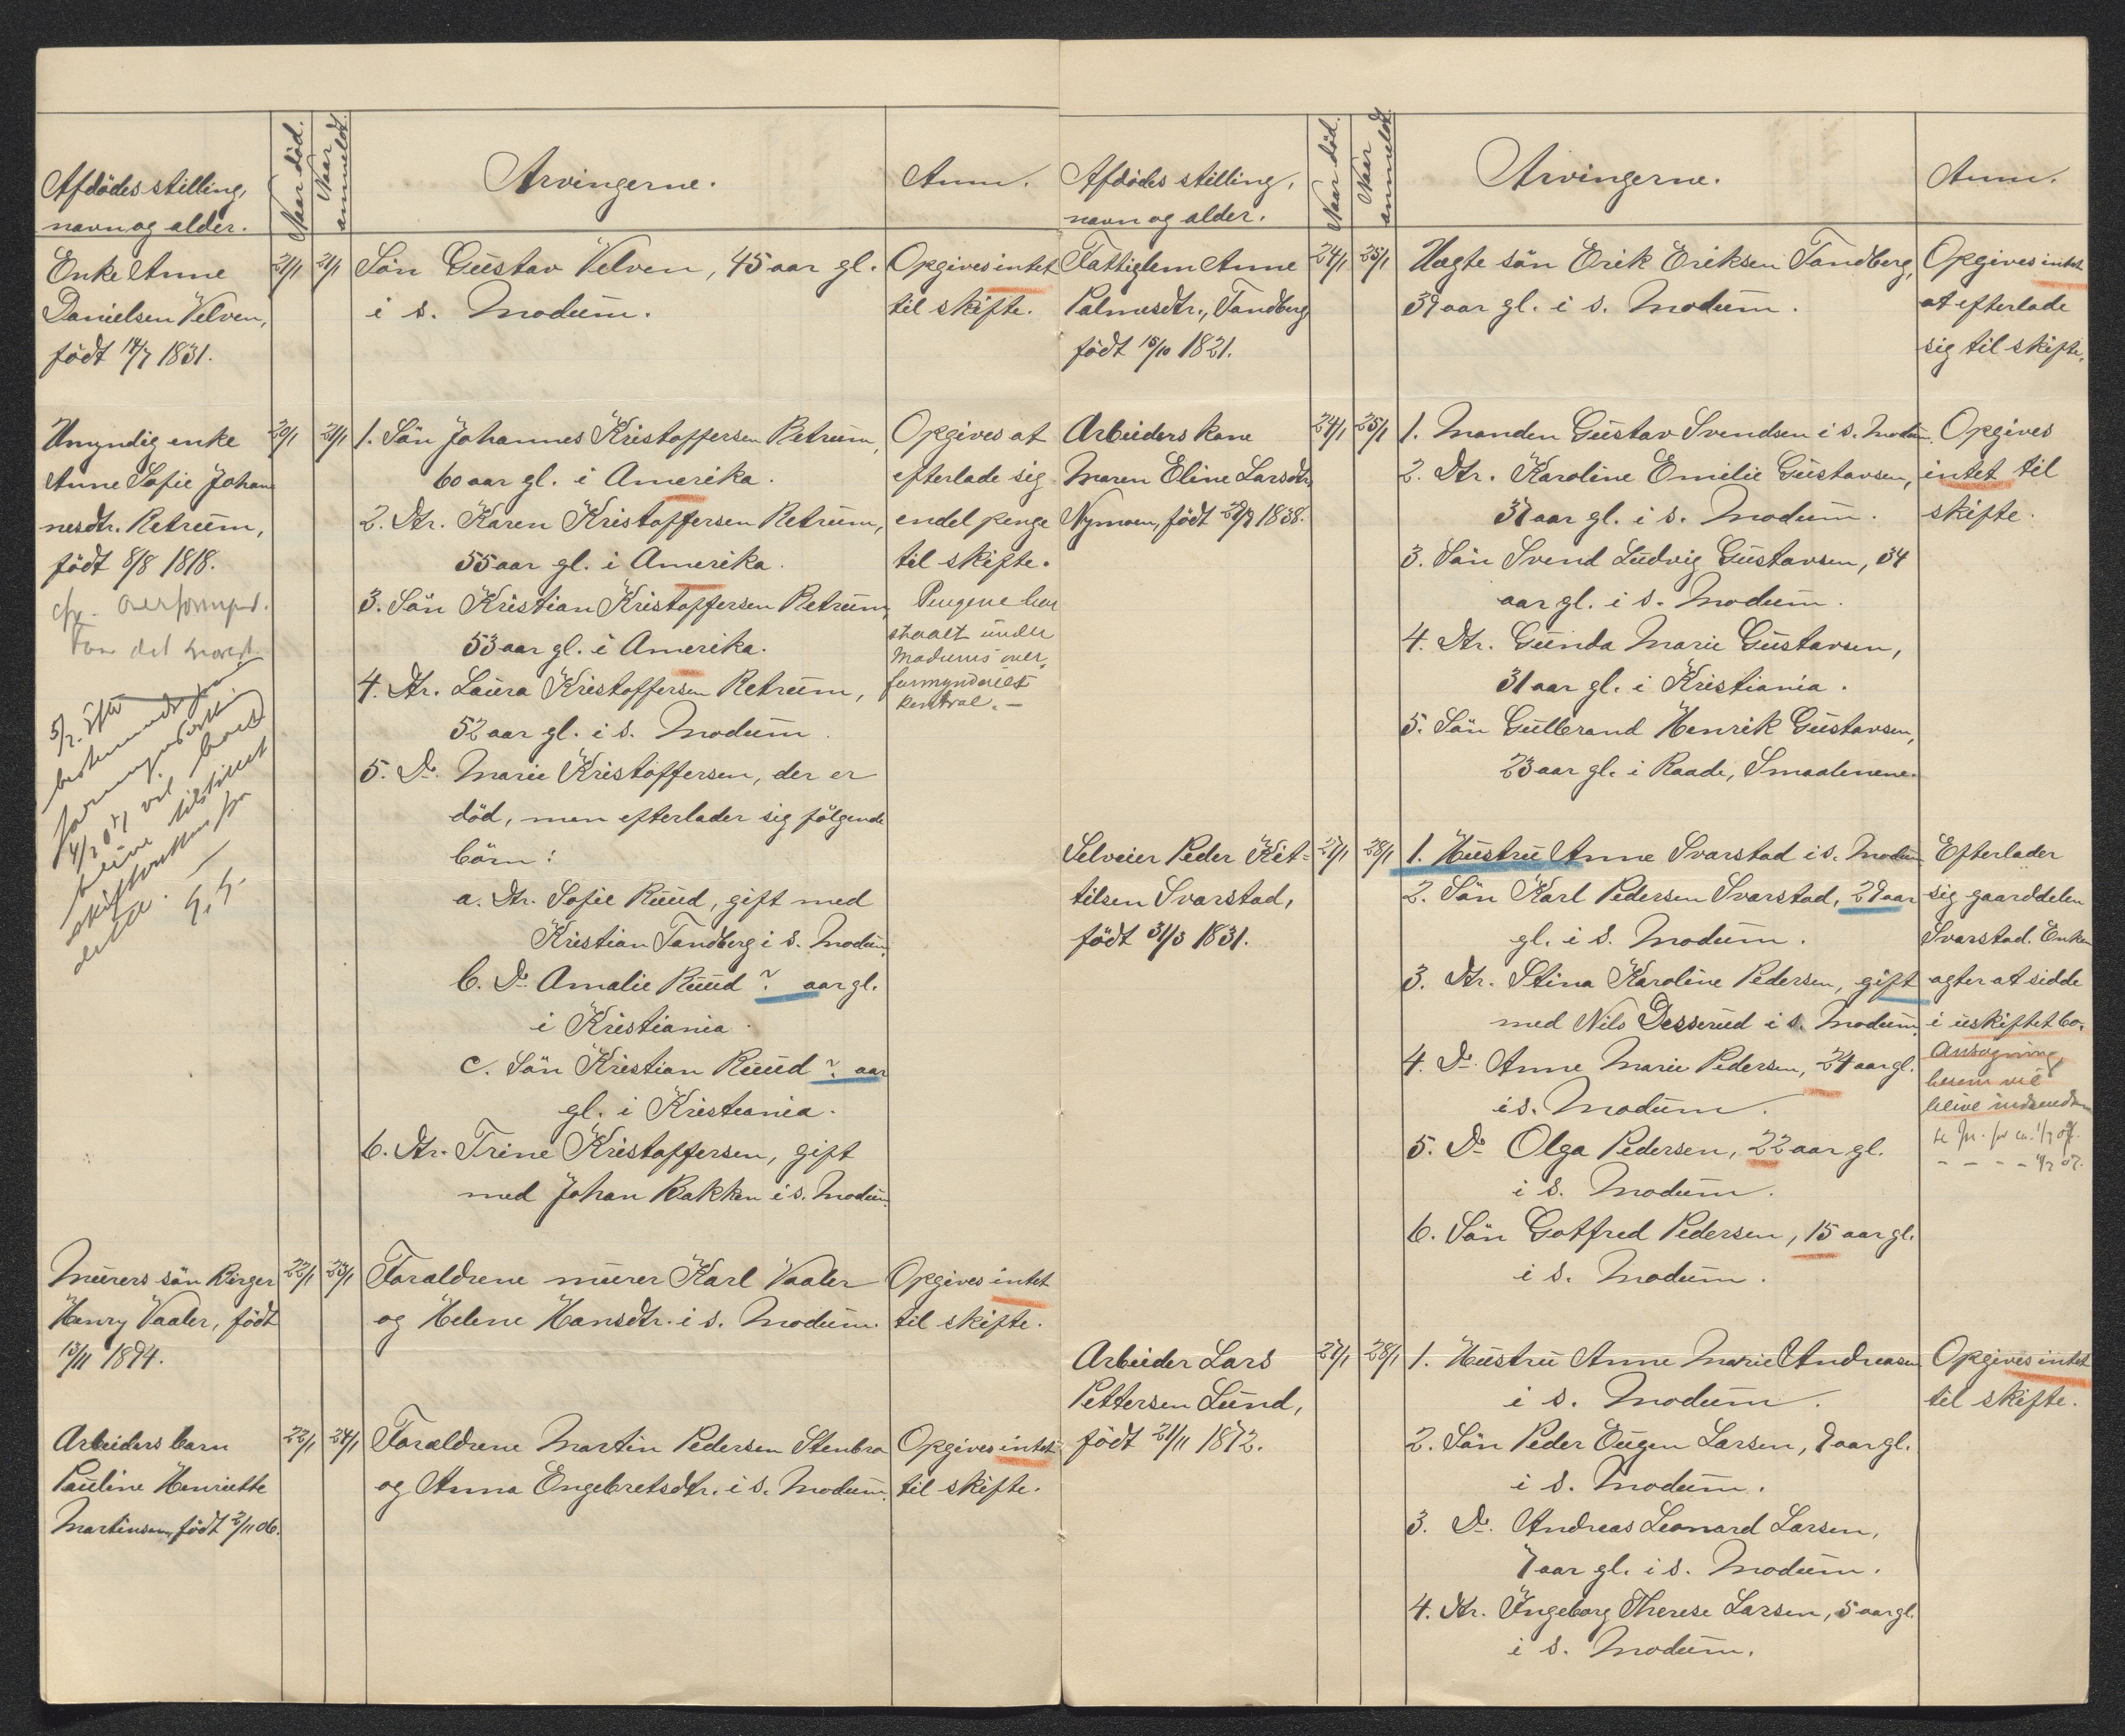 Afdödes stilling,
navn og alder.
Naar död.
Naar
anmeldt.
Arvingerne.
Anm.
Enke Anne
Danielsen Velven,
födt 14/7 1831.
21/1
21/1
Sön Gustav Velven, 45 aar gl.
i s. Modum.
Opgives intet
til skifte.
Umyndig enke
Anne Sofie Johan
nesdtr. Retrum,
födt 8/8 1818.
20/1
21/1
1. Sön Johannes Kristoffersen Retrum,
60 aar gl. i Amerika.
2. Dtr. Karen Kristoffersen Retrum,
55 aar gl. i Amerika.
3. Sön Kristian Kristoffersen Retrum,
53 aar gl. i Amerika.
4. Dtr. Laura Kristoffersen Retrum,
52 aar gl. i s. Modum.
5. Do. Marie Kristoffersen, der er
död, men efterlader sig fölgende
börn:
a. Dtr. Sofie Ruud, gift med
Kristian Tandberg i s. Modum.
b. Do. Amalie Ruud ? aar gl.
i Kristiania.
c. Sön Kristian Ruud ? aar
gl. i Kristiania.
6. Dtr. Trine Kristoffersen, gift
med Johan Bakken i s. Modum.
Opgives at
efterlade sig
endel penge
til skifte.
Pengene har
staaet under
Modums over-
formynderies
kontrol. -
Murers sön Birger
Henry Vaaler, födt
13/11 1894.
22/1
23/1
Forældrene murer Karl Vaaler
og Helene Hansdtr. i s. Modum.
Opgives intet
til skifte.
Arbeiders barn
Pauline Henriette
Martinsen, födt 2/11 06.
22/1
24/1
Forældrene Martin Pedersen Stenbro
og Anna Engebretsdtr. i s. Modum.
Opgives intet
til skifte.
Afdödes stilling,
navn og alder.
Naar död.
Naar
anmeldt.
Arvingerne.
Anm.
Fattiglem Anne
Palmesdtr., Tandberg
födt 15/10 1821.
24/1
25/1
Uægte sön Erik Eriksen Tandberg,
39 aar gl. i s. Modum.
Opgives intet
at efterlade
sig til skifte.
Arbeiders kone
Maren Eline Larsdtr.
Nymoen, födt 29/9 1838.
24/1
25/1
1. Manden Gustav Svendsen i s. Modum.
2. Dtr. Karoline Emilie Gustavsen,
37 aar gl. i s. Modum.
3. Sön Svend Ludvig Gustavsen, 34
aar gl. i s. Modum.
4. Dtr. Gunda Marie Gustavsen,
31 aar gl. i Kristiania.
5. Sön Gulbrand Henrik Gustavsen,
23 aar gl. i Raade, Smaalenene.
Opgives
intet til
skifte.
Selveier Peder Ket-
tilsen Svarstad,
födt 31/3 1831.
27/1
28/1
1. Hustru Anne Svarstad i s. Modum
2. Sön Karl Pedersen Svarstad, 29 aar
gl. i s. Modum.
3. Dtr. Stina Karoline Pedersen, gift
med Nils Desserud i s. Modum.
4. Do. Anne Marie Pedersen, 24 aar gl.
i s. Modum.
5. Do. Olga Pedersen, 22 aar gl.
i s. Modum.
6. Sön Gotfred Pedersen, 15 aar gl.
i s. Modum.
Efterlader
sig gaarddelen
Svarstad. Enken
agter at sidde
i uskiftet bo.
Ansögning
herom vil
blive indsendt
Arbeider Lars
Pettersen Lund,
födt 21/11 1872.
27/1
28/1
1. Hustru Anne Marie Andreasen
i s. Modum.
2. Sön Peder Eugen Larsen, 9 aar gl.
i s. Modum.
3. Do. Andreas Leonard Larsen,
7 aar gl. i s. Modum.
4. Dtr. Ingeborg Therese Larsen, 5 aar gl.
i s. Modum.
Opgives intet
til skifte.